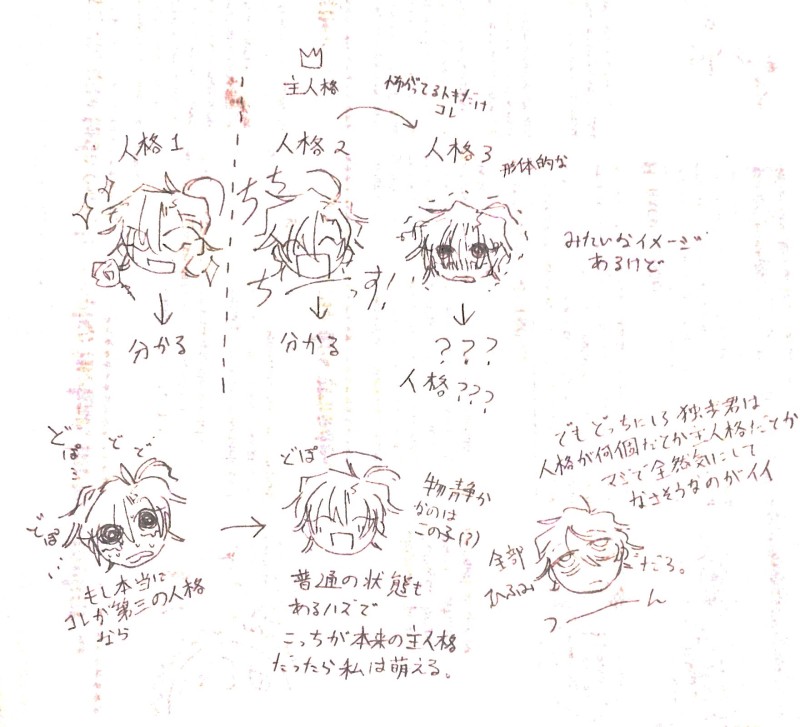 主人格
怖がってるトキだけ
コレ
人格1
人格2
人格3
形体的な
ちち
ち
っす!
みたいなイメージ
あるけど
分かる
分かる
???
人格???
どぽ
どど
どぽ…
どぽ
物静か
なのは
この子(?)
もし本当に
コレが第三の人格
なら
普通の状態も
あるハズで
こっちが本来の主人格
だったら私は萌える。
でもどっちにしろ独歩君は
人格が何個だとか主人格だとか
マジで全然気にして
なさそうなのがイイ
全部
ひふみ
だろ。
つーーん